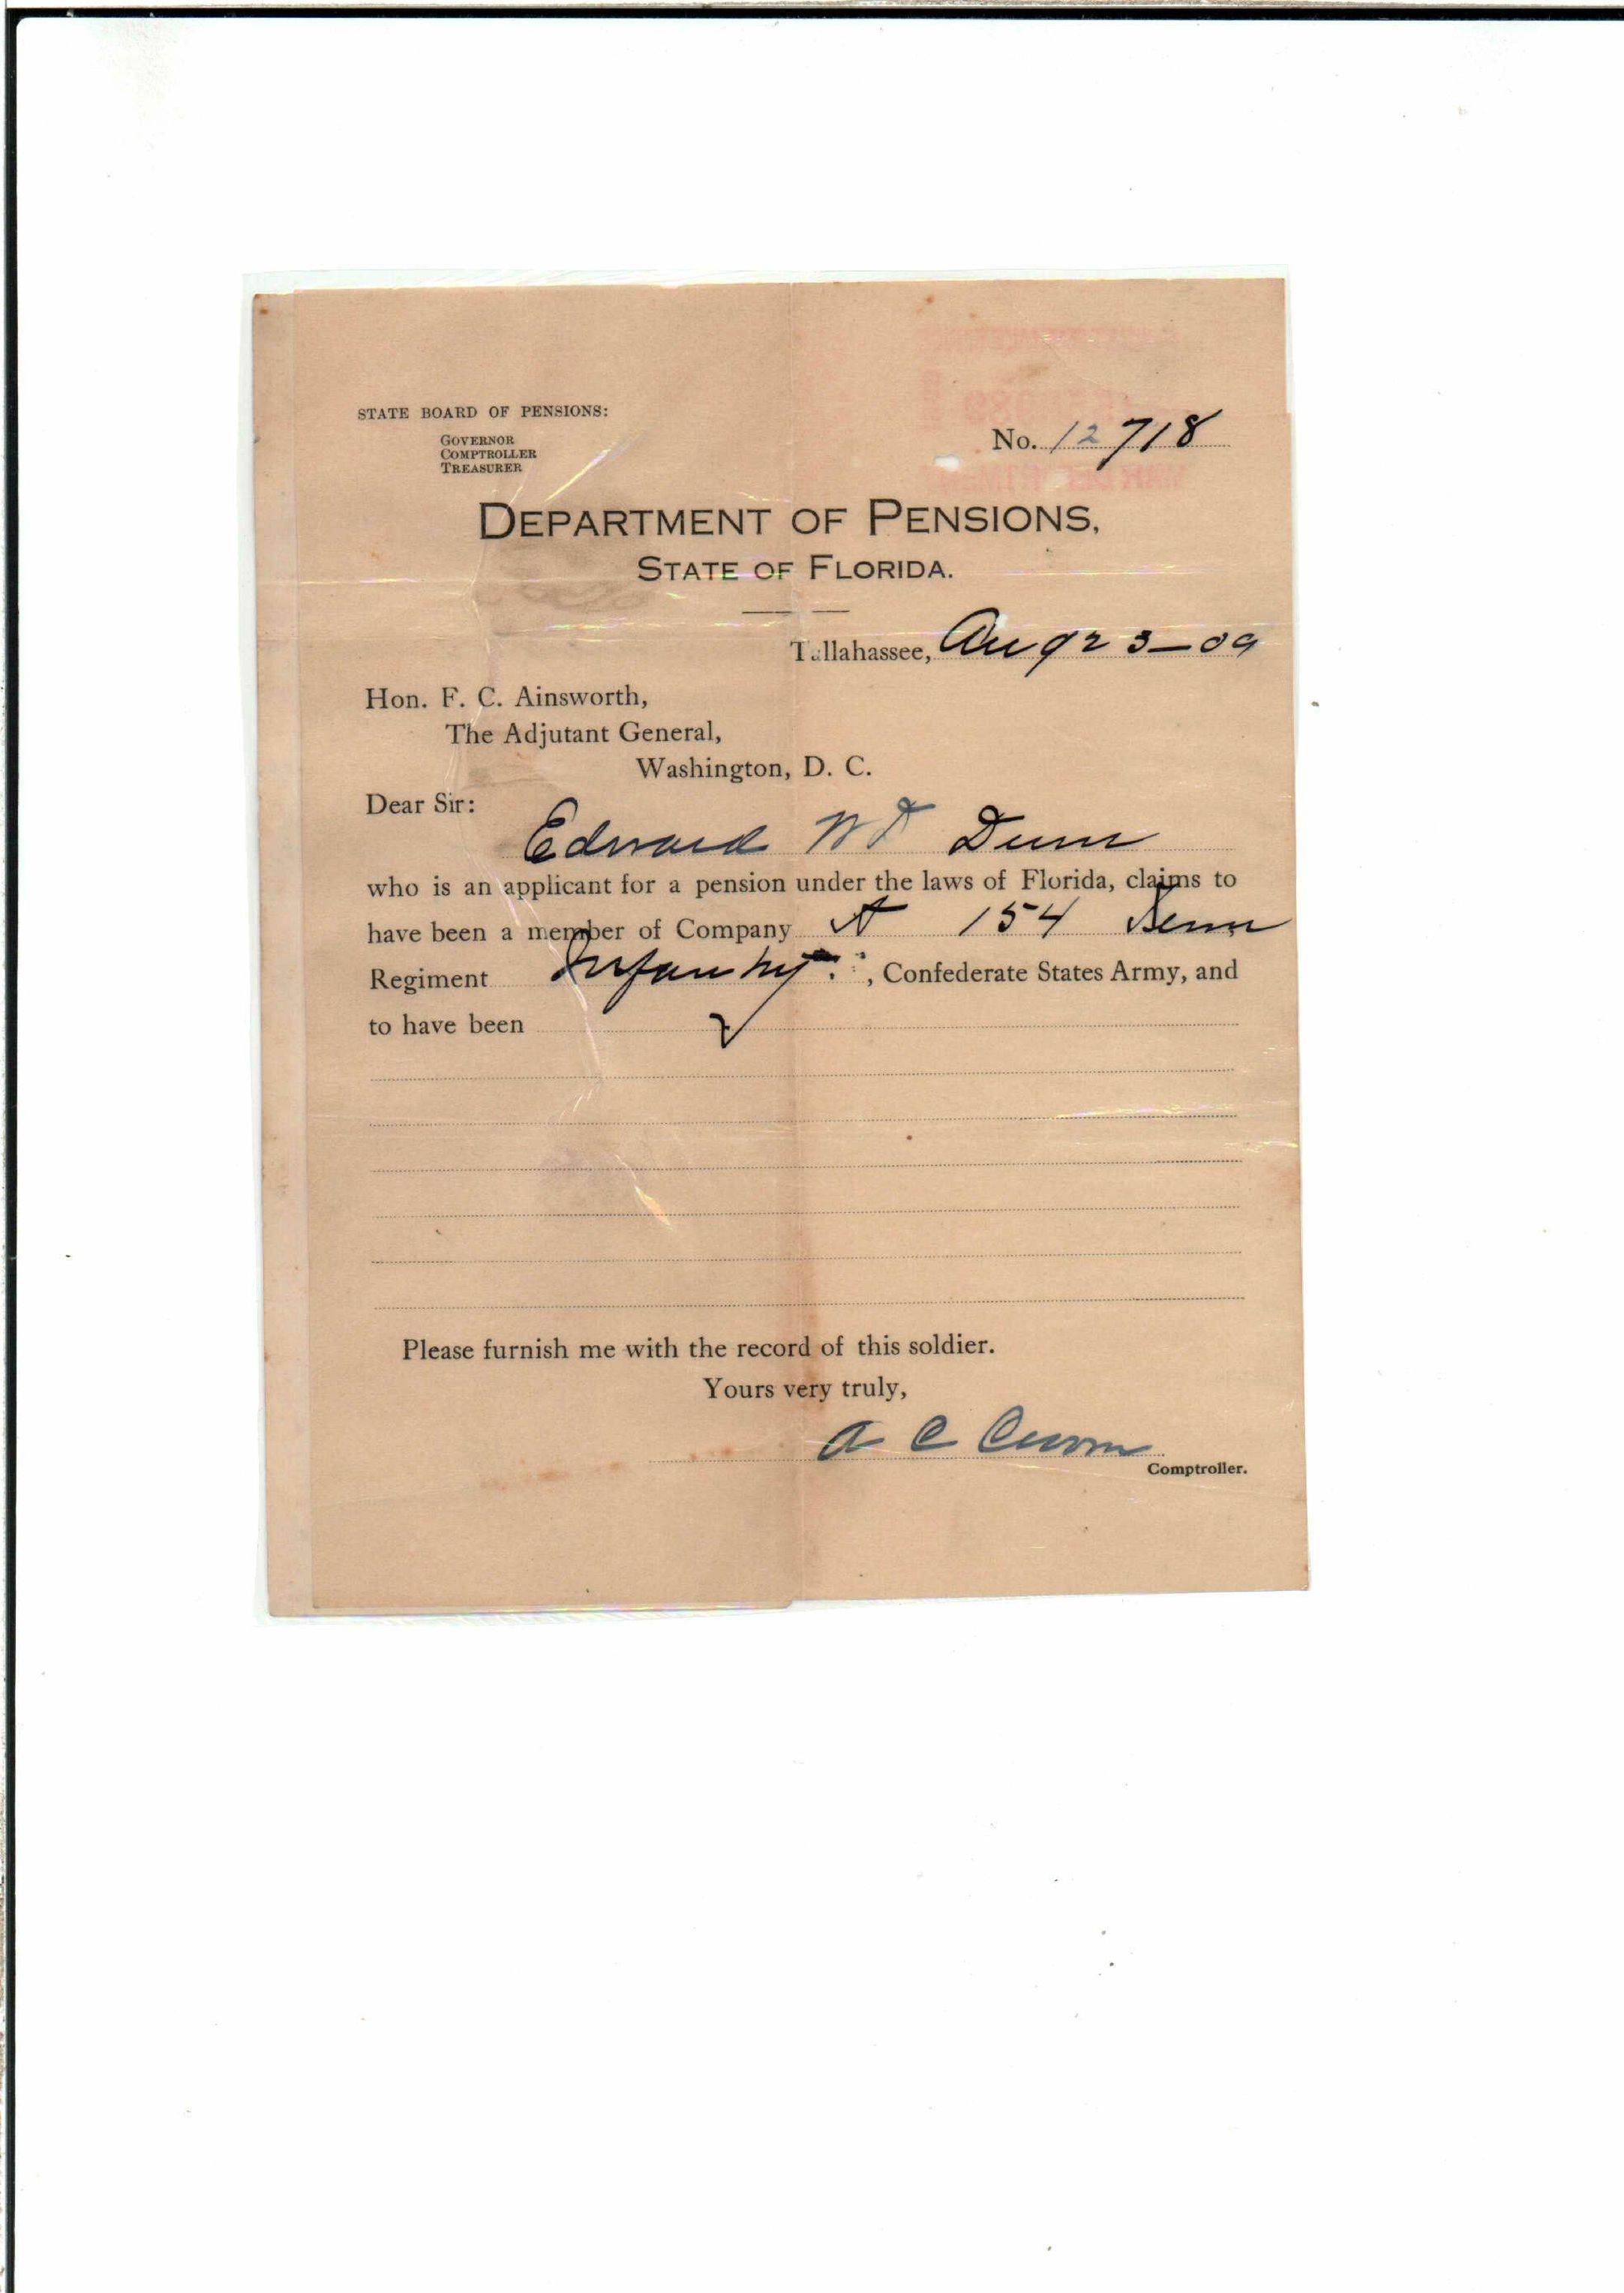 STATE BOARD OF PENSIONS:
GOVERNOR
COMPTROLLER
TREASURER
No. 12718
DEPARTMENT OF PENSIONS,
STATE OF FLORIDA.
Tallahassee, Aug 23-09
Hon. F. C. Ainsworth,
The Adjutant General,
Washington, D. C.
Dear Sir:
Edward W D Dunn
who is an applicant for a pension under the laws of Florida, claims to
have been a member of Company A 154 Tenn
Regiment Infantry, Confederate States Army, and
to have been
Please furnish me with the record of this soldier.
Yours very truly,
A C Croom
Comptroller.